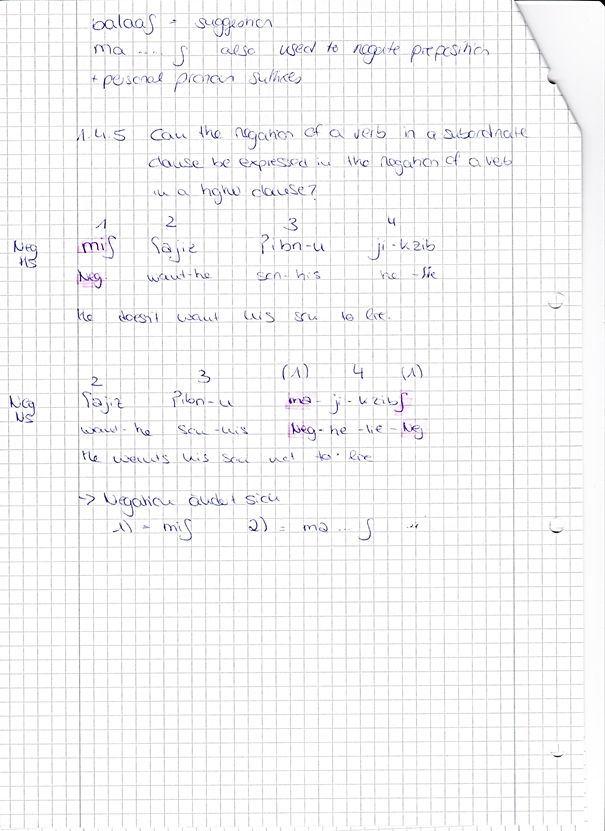 balaaʃ = suggestion
ma .... ʃ also used to negate preposition
+ personal pronoun suffixes
1.4.5 Can the negation of a verb in a subordinate
clause be expressed in the negation of a verb
in a higher clause?
1 2 3 4
Neg HS miʃ ʕajiz ʔibn-u ji-kzib
Neg. want-he son-his he-lie
He doesn't want his son to lie.
2 3 (1) 4 (1)
Neg NS ʕajiz ʔibn-u ma-ji-kzibʃ
want-he son-his Neg-he-lie-Neg
He wants his son not to lie
-> Negation ändert sich
1) = miʃ 2) = ma ... ʃ